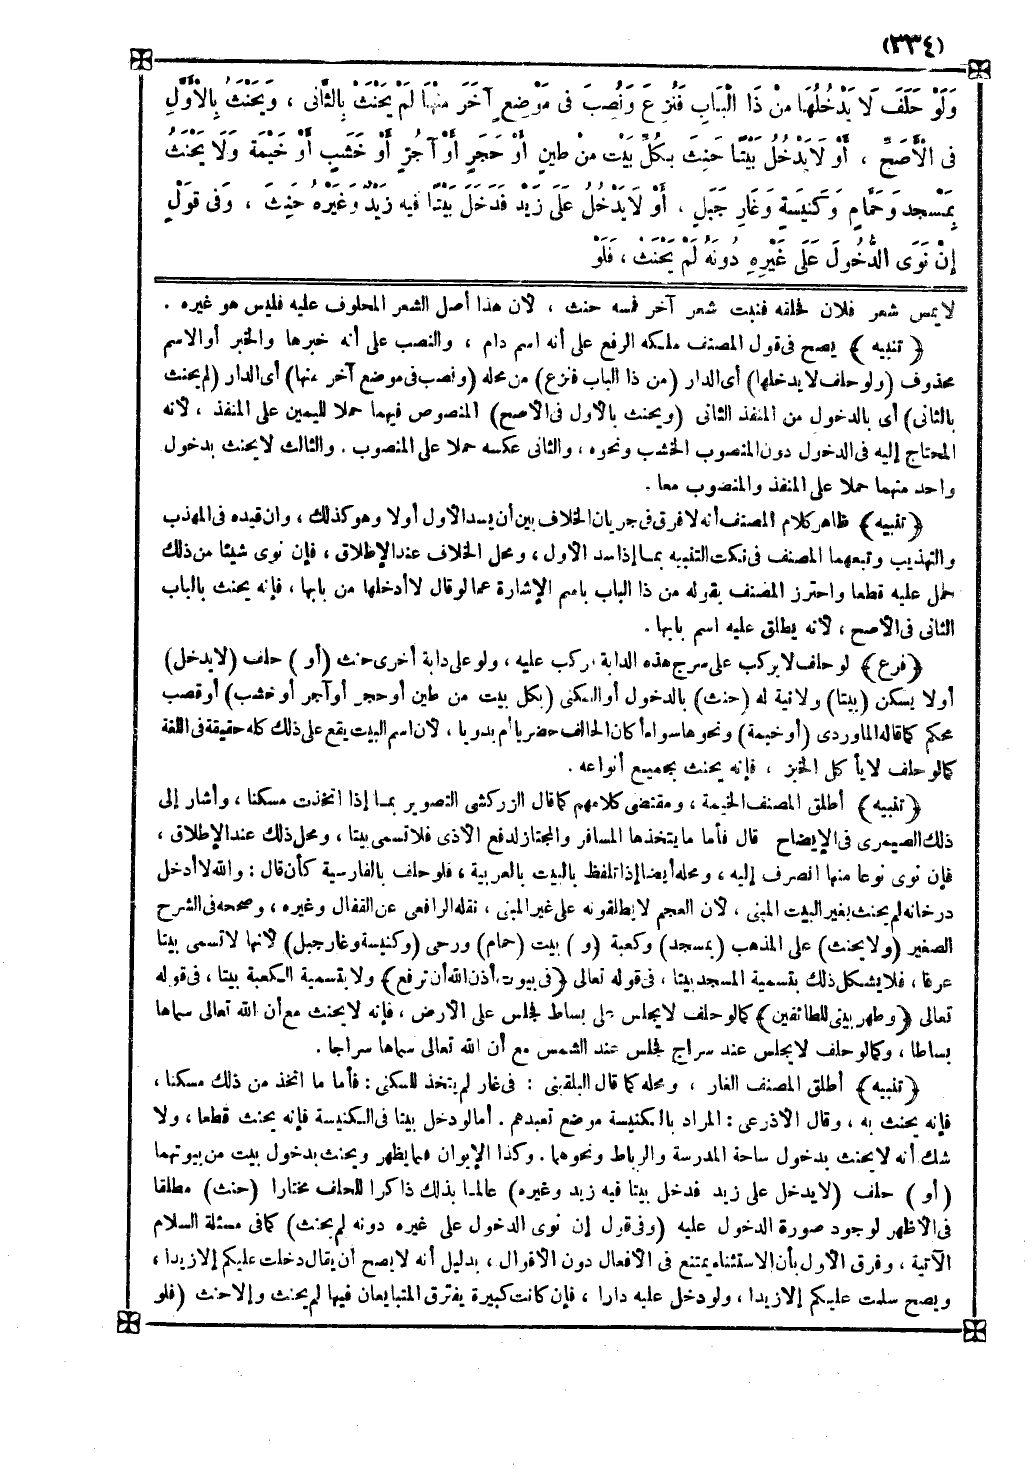 (٣٣٤)
وَلَوْ حَلَفَ لَا يَدْخُلُهَا مِنْ ذَا الْبَابِ فَنُزِعَ وَنُصِبَ فى مَوْضِعٍ آخَرَ مِنْهَا لَمْ يَحْنَثْ بِالثَّانى ، وَيَحْنَثُ بِالْأَوَّلِ
فى الْأَصَحِّ ، أَوْ لَا يَدْخُلُ بَيْتًا حَنِثَ بِكُلِّ بَيْتٍ مِنْ طِينٍ أَوْ حَجَرٍ أَوْ آجُرٍّ أَوْ خَشَبٍ أَوْ خَيْمَةٍ وَلَا يَحْنَثُ
بِمَسْجِدٍ وَحَمَّامٍ وَكَنِيسَةٍ وَغَارِ جَبَلٍ ، أَوْ لَا يَدْخُلُ عَلَى زَيْدٍ فَدَخَلَ بَيْتًا فِيهِ زَيْدٌ وَغَيْرُهُ حَنِثَ ، وَفى قَوْلٍ
إِنْ نَوَى الدُّخُولَ عَلَى غَيْرِهِ دُونَهُ لَمْ يَحْنَثْ ، فَلَوْ
لايمس شعر فلان فحلقه فنبت شعر آخر فمسه حنث ، لأن هذا أصل الشعر المحلوف عليه فليس هو غيره .
﴿ تنبيه ﴾ يصح فى قول المصنف ملكه الرفع على أنه اسم دام ، والنصب على أنه خبرها والخبر أو الاسم
محذوف (ولو حلف لا يدخلها) أى الدار (من ذا الباب فنزع) من محله (ونصب فى موضع آخر منها) أى الدار (لم يحنث
بالثانى) أى بالدخول من المنفذ الثانى (ويحنث بالأول فى الأصح) المنصوص فيهما حملا لليمين على المنفذ ، لأنه
المحتاج إليه فى الدخول دون المنصوب الخشب ونحوه ، والثانى عكسه حملا على المنصوب . والثالث لا يحنث بدخول
واحد منهما حملا على المنفذ والمنصوب معا .
﴿ تنبيه ﴾ ظاهر كلام المصنف أنه لا فرق فى جريان الخلاف بين أن يسد الأول أولا وهو كذلك ، وان قيده فى المهذب
والتهذيب وتبعهما المصنف فى نكت التنبيه بما إذا سد الأول ، ومحل الخلاف عند الإطلاق ، فإن نوى شيئا من ذلك
حمل عليه قطعا واحترز المصنف بقوله من ذا الباب باسم الإشارة عما لو قال لا أدخلها من بابها ، فإنه يحنث بالباب
الثانى فى الأصح ، لأنه يطلق عليه اسم بابها .
﴿ فرع ﴾ لو حلف لا يركب على سرج هذه الدابة فركب عليه ، ولو على دابة أخرى حنث (أو ) حلف (لا يدخل)
أولا يسكن (بيتا) ولانية له (حنث) بالدخول أو السكنى (بكل بيت من طين أو حجر أو آجر أو خشب) أو قصب
محكم كما قاله الماوردى (أو خيمة) ونحوها سواء أكان الحالف حضريا أم بدويا ، لأن اسم البيت يقع على ذلك كله حقيقة فى اللغة
كما لو حلف لا يأكل الخبز ، فإنه يحنث بجميع أنواعه .
﴿ تنبيه ﴾ أطلق المصنف الخيمة ، ومقتضى كلامهم كما قال الزركشى التصوير بما إذا اتخذت مسكنا ، وأشار إلى
ذلك الصيمرى فى الإيضاح قال فأما ما يتخذها المسافر والمجتاز لدفع الأذى فلا تسمى بيتا ، ومحل ذلك عند الإطلاق ،
فإن نوى نوعا منها انصرف إليه ، ومحله أيضا إذا تلفظ بالبيت بالعربية ، فلو حلف بالفارسية كأن قال : والله لا أدخل
درخانه لم يحنث بغير البيت المبنى ، لأن العجم لا يطلقونه على غير المبنى ، نقله الرافعى عن القفال وغيره ، وصححه فى الشرح
الصغير (ولا يحنث) على المذهب (بمسجد) وكعبة (و ) بيت (حمام) ورحى (وكنيسة وغار جبل) لأنها لا تسمى بيتا
عرفا ، فلا يشكل ذلك بتسمية المسجد بيتا ، فى قوله تعالى ﴿فى بيوت أذن الله أن ترفع﴾ ولا بتسمية الكعبة بيتا ، فى قوله
تعالى ﴿وطهر بيتى للطائفين﴾ كما لو حلف لا يجلس على بساط فجلس على الأرض ، فإنه لا يحنث مع أن الله تعالى سماها
بساطا ، وكما لو حلف لا يجلس عند سراج فجلس عند الشمس مع أن الله تعالى سماها سراجا .
﴿ تنبيه ﴾ أطلق المصنف الغار ، ومحله كما قال البلقينى : فى غار لم يتخذ للسكنى : فأما ما اتخذ من ذلك مسكنا ،
فإنه يحنث به ، وقال الأذرعى : المراد بالكنيسة موضع تعبدهم . أما لو دخل بيتا فى الكنيسة فإنه يحنث قطعا ، ولا
شك أنه لا يحنث بدخول ساحة المدرسة والرباط ونحوهما . وكذا الإيوان فيما يظهر ويحنث بدخول بيت من بيوتهما
(أو ) حلف (لا يدخل على زيد فدخل بيتا فيه زيد وغيره) عالما بذلك ذاكرا للحلف مختارا (حنث) مطلقا
فى الأظهر لوجود صورة الدخول عليه (وفى قول إن نوى الدخول على غيره دونه لم يحنث) كما فى مسئلة السلام
الآتية ، وفرق الأول بأن الاستثناء يمتنع فى الأفعال دون الأقوال ، بدليل أنه لا يصح أن يقال دخلت عليكم إلا زيدا ،
ويصح سلمت عليكم إلا زيدا ، ولو دخل عليه دارا ، فإن كانت كبيرة يفترق المتبايعان فيها لم يحنث وإلا حنث (فلو